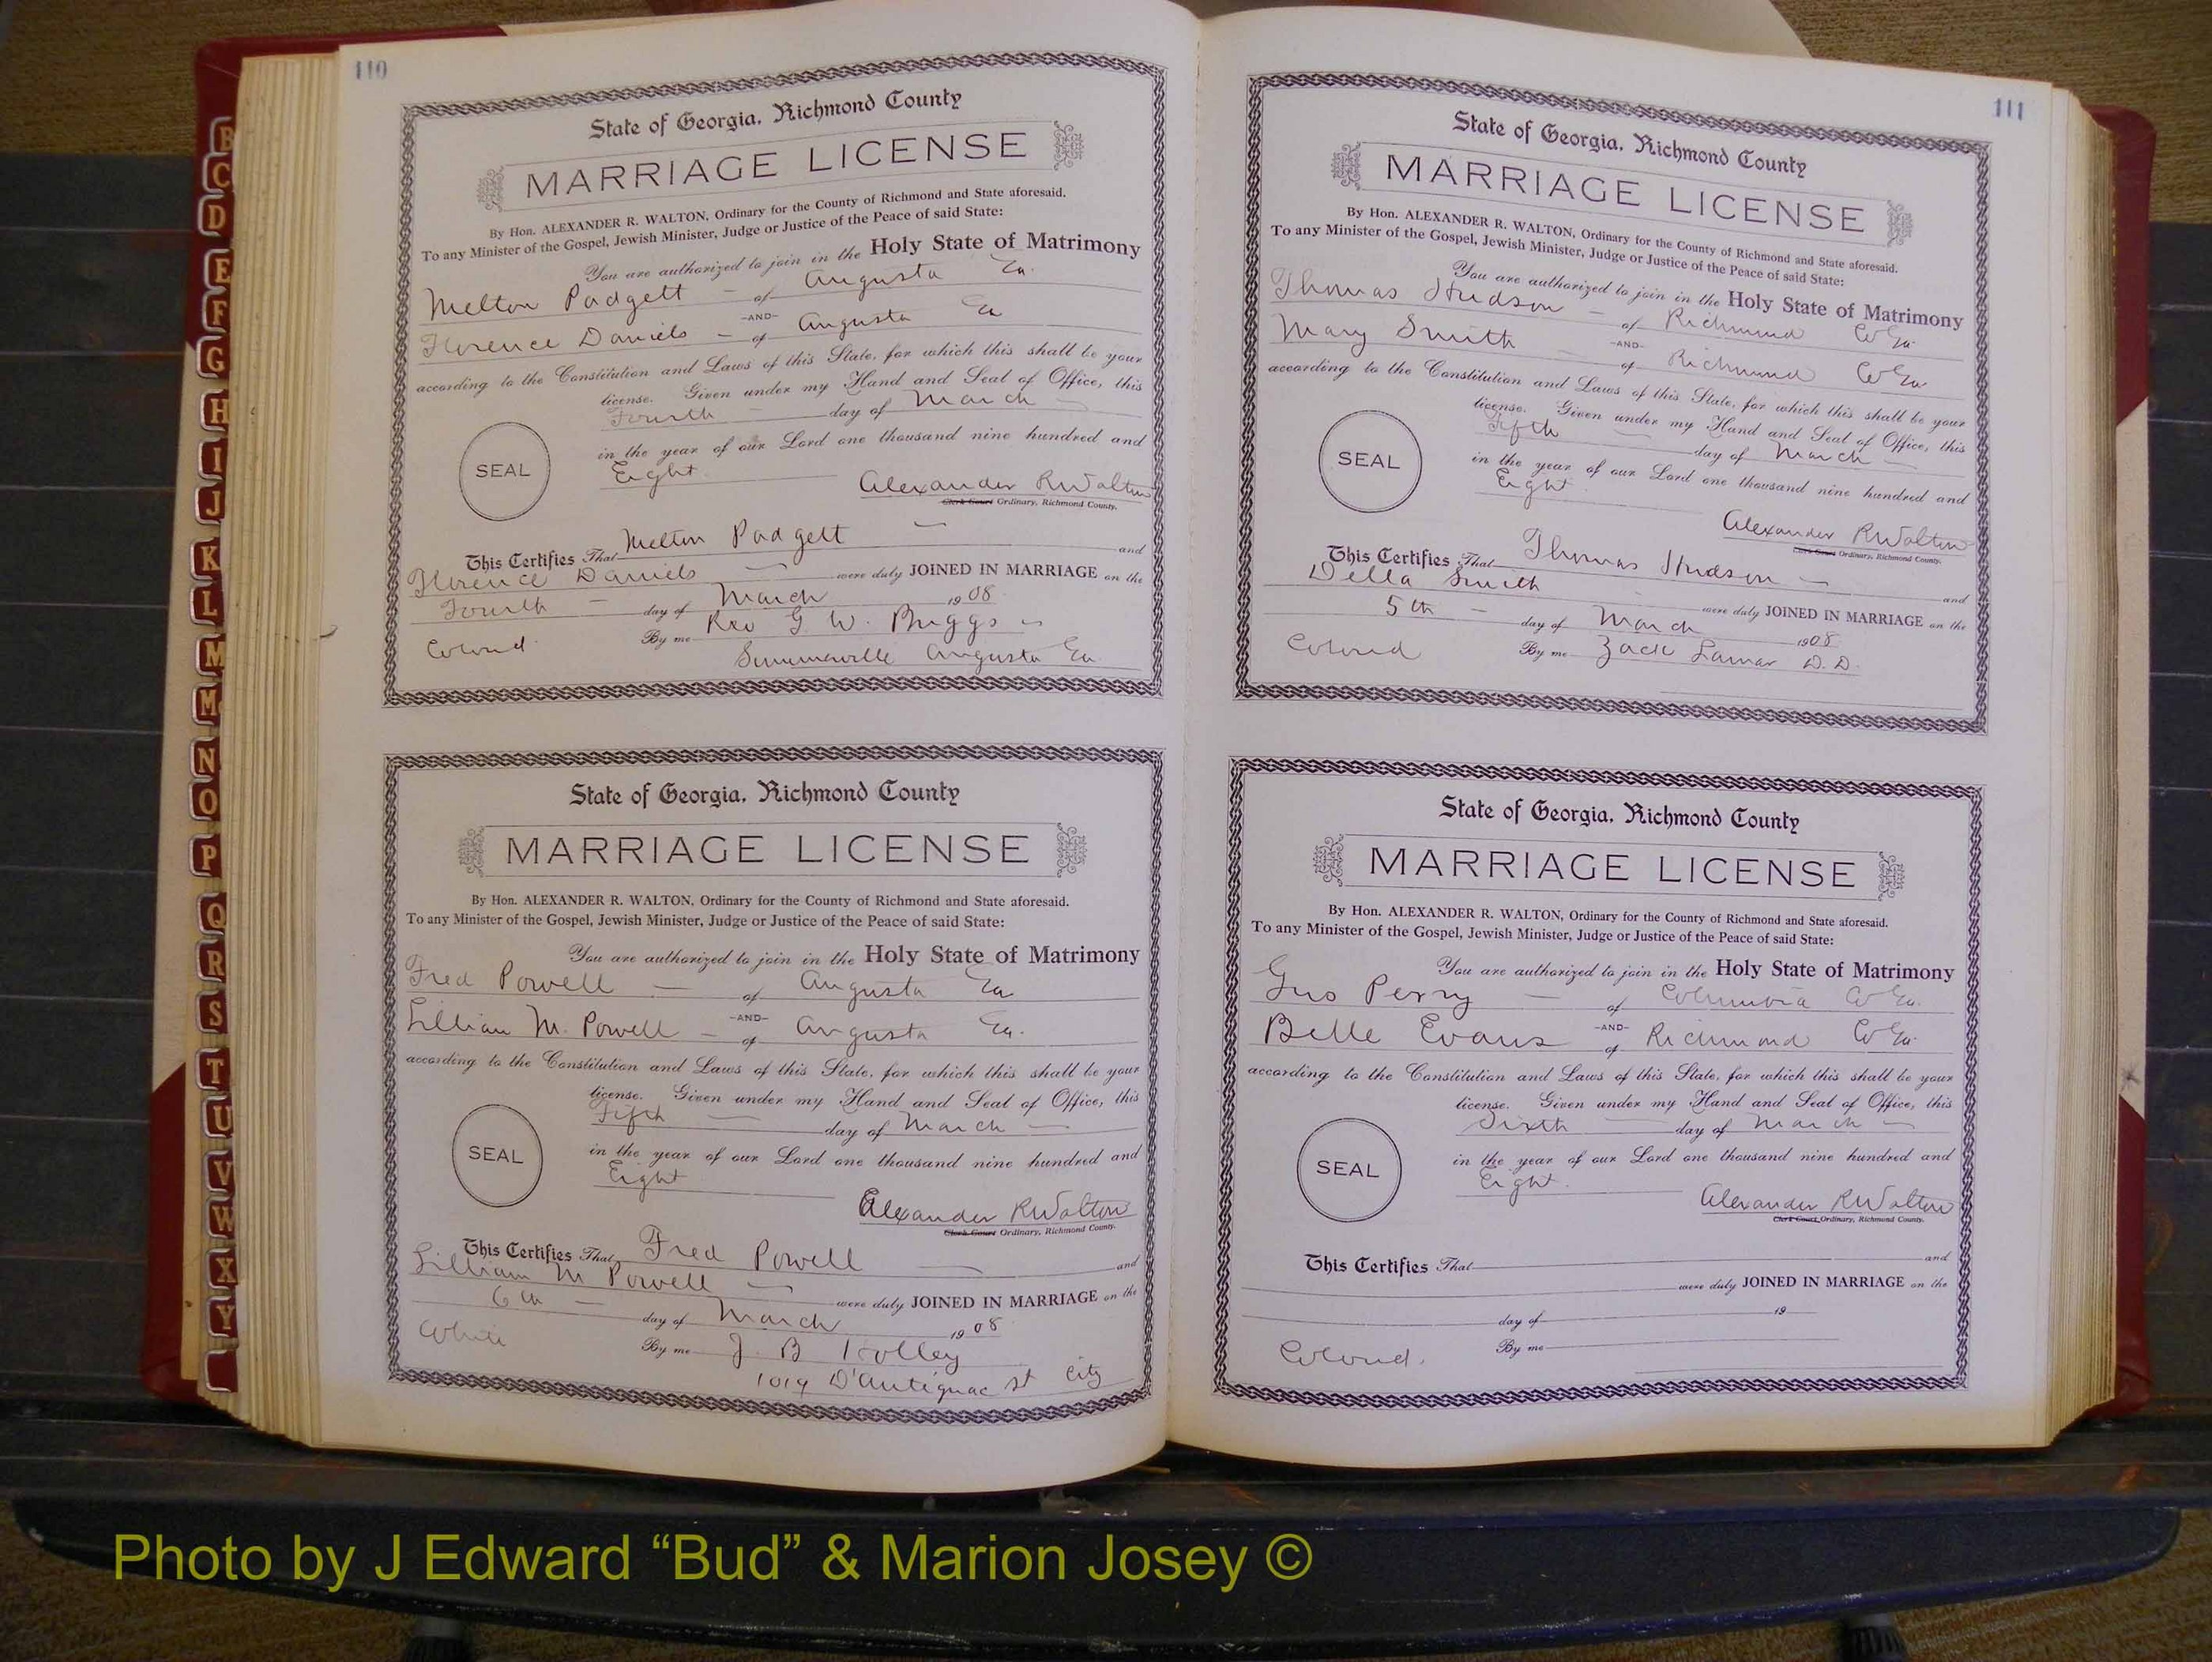 110
State of Georgia, Richmond County
MARRIAGE LICENSE
By Hon. ALEXANDER R. WALTON, Ordinary for the County of Richmond and State aforesaid.
To any Minister of the Gospel, Jewish Minister, Judge or Justice of the Peace of said State:
You are authorized to join in the Holy State of Matrimony
Melton Padgett - of Augusta Ga.
-AND-
Florence Daniels - of Augusta Ga
according to the Constitution and Laws of this State, for which this shall be your
license. Given under my Hand and Seal of Office, this
Fourth - day of March -
in the year of our Lord one thousand nine hundred and
Eight
SEAL
Alexander R Walton
Clerk Court Ordinary, Richmond County.
This Certifies That Melton Padgett - and
Florence Daniels - were duly JOINED IN MARRIAGE on the
Fourth - day of March 1908
Colored By me Rev G. W. Briggs
Summerville Augusta Ga.
State of Georgia, Richmond County
MARRIAGE LICENSE
By Hon. ALEXANDER R. WALTON, Ordinary for the County of Richmond and State aforesaid.
To any Minister of the Gospel, Jewish Minister, Judge or Justice of the Peace of said State:
You are authorized to join in the Holy State of Matrimony
Fred Powell - of Augusta Ga
-AND-
Lillian M. Powell - of Augusta Ga.
according to the Constitution and Laws of this State, for which this shall be your
license. Given under my Hand and Seal of Office, this
Fifth - day of March -
in the year of our Lord one thousand nine hundred and
Eight
SEAL
Alexander R Walton
Clerk Court Ordinary, Richmond County.
This Certifies That Fred Powell - and
Lillian M Powell - were duly JOINED IN MARRIAGE on the
6th - day of March 1908
White By me J. B Holley
1019 D'Antignac St City
111
State of Georgia, Richmond County
MARRIAGE LICENSE
By Hon. ALEXANDER R. WALTON, Ordinary for the County of Richmond and State aforesaid.
To any Minister of the Gospel, Jewish Minister, Judge or Justice of the Peace of said State:
You are authorized to join in the Holy State of Matrimony
Thomas Hudson - of Richmond Co Ga.
-AND-
Mary Smith - of Richmond Co Ga
according to the Constitution and Laws of this State, for which this shall be your
license. Given under my Hand and Seal of Office, this
Fifth - day of March -
in the year of our Lord one thousand nine hundred and
Eight
SEAL
Alexander R Walton
Clerk Court Ordinary, Richmond County.
This Certifies That Thomas Hudson - and
Della Smith were duly JOINED IN MARRIAGE on the
5th - day of March 1908
Colored By me Zack Lamar D. D.
State of Georgia, Richmond County
MARRIAGE LICENSE
By Hon. ALEXANDER R. WALTON, Ordinary for the County of Richmond and State aforesaid.
To any Minister of the Gospel, Jewish Minister, Judge or Justice of the Peace of said State:
You are authorized to join in the Holy State of Matrimony
Gus Perry - of Columbia Co Ga.
-AND-
Belle Evans of Richmond Co Ga.
according to the Constitution and Laws of this State, for which this shall be your
license. Given under my Hand and Seal of Office, this
Sixth - day of March -
in the year of our Lord one thousand nine hundred and
Eight.
SEAL
Alexander R Walton
Clerk Court Ordinary, Richmond County.
This Certifies That and
were duly JOINED IN MARRIAGE on the
day of 19
Colored. By me
B
C
D
E
F
G
H
I
J
K
L
M
M
N
O
P
Q
R
S
T
U
V
W
X
Y
Photo by J Edward “Bud” & Marion Josey ©